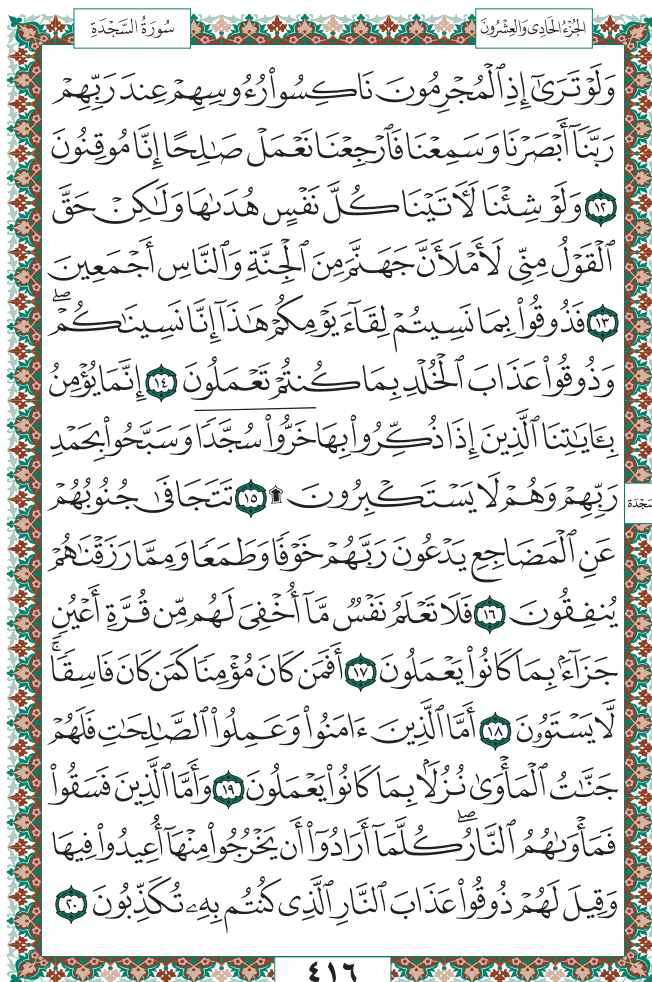 الجُزْءُ الحَادِي وَالعِشْرُونَ
سُورَةُ السَّجْدَةِ
وَلَوْ تَرَىٰٓ إِذِ ٱلْمُجْرِمُونَ نَاكِسُوا۟ رُءُوسِهِمْ عِندَ رَبِّهِمْ
رَبَّنَآ أَبْصَرْنَا وَسَمِعْنَا فَٱرْجِعْنَا نَعْمَلْ صَٰلِحًا إِنَّا مُوقِنُونَ
١٢ وَلَوْ شِئْنَا لَءَاتَيْنَا كُلَّ نَفْسٍ هُدَىٰهَا وَلَٰكِنْ حَقَّ
ٱلْقَوْلُ مِنِّى لَأَمْلَأَنَّ جَهَنَّمَ مِنَ ٱلْجِنَّةِ وَٱلنَّاسِ أَجْمَعِينَ
١٣ فَذُوقُوا۟ بِمَا نَسِيتُمْ لِقَآءَ يَوْمِكُمْ هَٰذَآ إِنَّا نَسِينَٰكُمْ ۖ
وَذُوقُوا۟ عَذَابَ ٱلْخُلْدِ بِمَا كُنتُمْ تَعْمَلُونَ ١٤ إِنَّمَا يُؤْمِنُ
بِـَٔايَٰتِنَا ٱلَّذِينَ إِذَا ذُكِّرُوا۟ بِهَا خَرُّوا۟ سُجَّدًا وَسَبَّحُوا۟ بِحَمْدِ
رَبِّهِمْ وَهُمْ لَا يَسْتَكْبِرُونَ ۩ ١٥ تَتَجَافَىٰ جُنُوبُهُمْ
عَنِ ٱلْمَضَاجِعِ يَدْعُونَ رَبَّهُمْ خَوْفًا وَطَمَعًا وَمِمَّا رَزَقْنَٰهُمْ
يُنفِقُونَ ١٦ فَلَا تَعْلَمُ نَفْسٌ مَّآ أُخْفِىَ لَهُم مِّن قُرَّةِ أَعْيُنٍ
جَزَآءًۢ بِمَا كَانُوا۟ يَعْمَلُونَ ١٧ أَفَمَن كَانَ مُؤْمِنًا كَمَن كَانَ فَاسِقًا ۚ
لَّا يَسْتَوُۥنَ ١٨ أَمَّا ٱلَّذِينَ ءَامَنُوا۟ وَعَمِلُوا۟ ٱلصَّٰلِحَٰتِ فَلَهُمْ
جَنَّٰتُ ٱلْمَأْوَىٰ نُزُلًۢا بِمَا كَانُوا۟ يَعْمَلُونَ ١٩ وَأَمَّا ٱلَّذِينَ فَسَقُوا۟
فَمَأْوَىٰهُمُ ٱلنَّارُ ۖ كُلَّمَآ أَرَادُوٓا۟ أَن يَخْرُجُوا۟ مِنْهَآ أُعِيدُوا۟ فِيهَا
وَقِيلَ لَهُمْ ذُوقُوا۟ عَذَابَ ٱلنَّارِ ٱلَّذِى كُنتُم بِهِۦ تُكَذِّبُونَ ٢٠
٤١٦